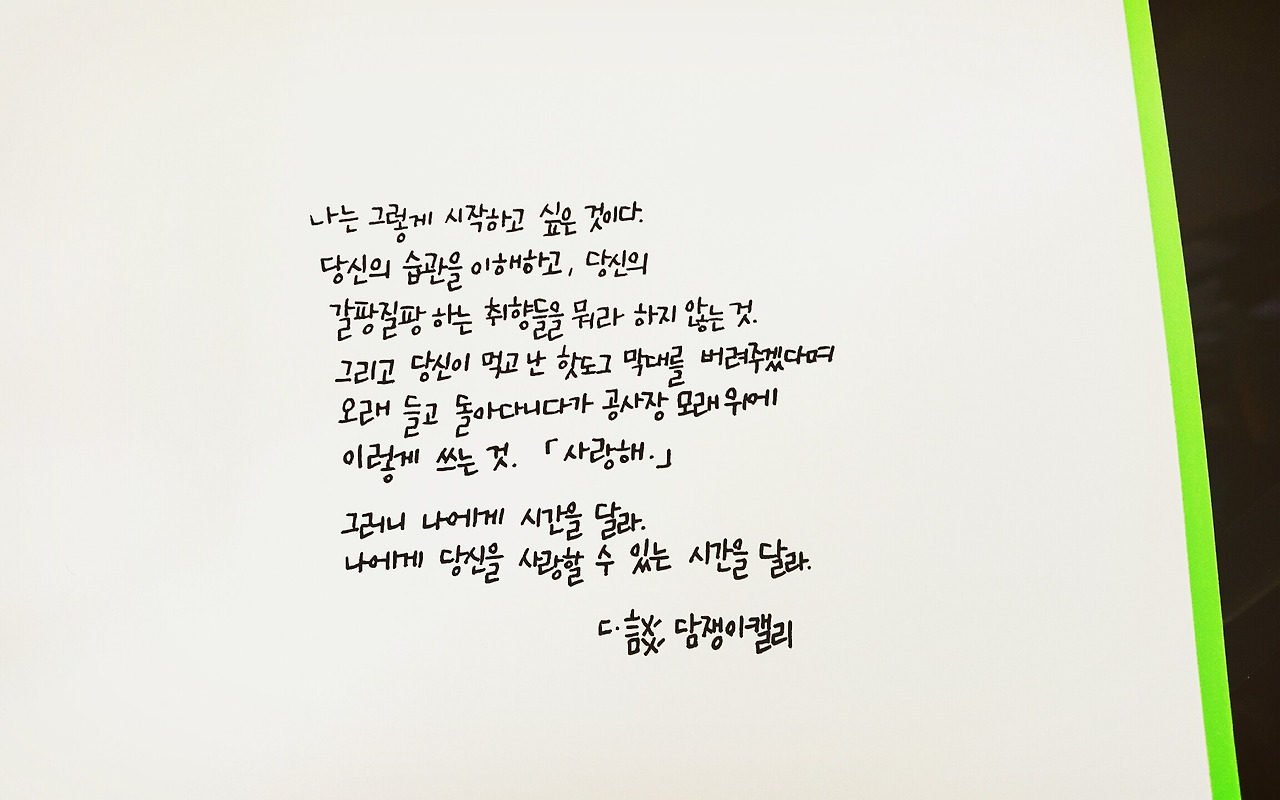 나는 그렇게 시작하고 싶은 것이다.
당신의 습관을 이해하고, 당신의
갈팡질팡 하는 취향들을 뭐라 하지 않는 것.
그리고 당신이 먹고 난 핫도그 막대를 버려주겠다며
오래 들고 돌아다니다가 공사장 모래 위에
이렇게 쓰는 것. 「사랑해.」
그러니 나에게 시간을 달라.
나에게 당신을 사랑할 수 있는 시간을 달라.
ㄷ·談 담쟁이캘리